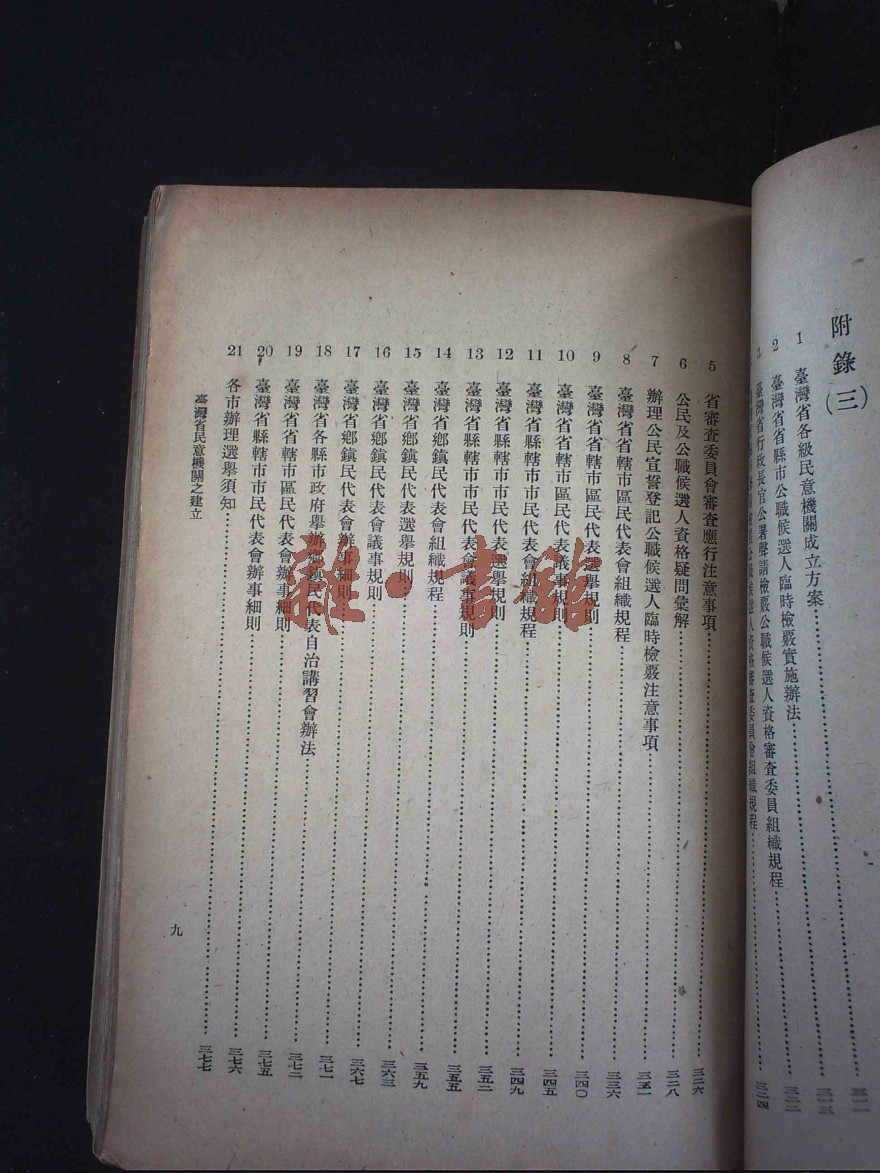 附錄(三)
1 臺灣省各級民意機關成立方案
2 臺灣省省縣市公職候選人臨時檢覈實施辦法
3 臺灣省行政長官公署聲請檢覈公職候選人資格審查委員組織規程
人資格審查委員會組織規程 三二四
5 省審查委員會審查應行注意事項 三二六
6 公民及公職候選人資格疑問彙解 三二八
7 辦理公民宣誓登記公職候選人臨時檢覈注意事項 三三一
8 臺灣省省轄市區民代表會組織規程 三三六
9 臺灣省省轄市區民代表選舉規則 三四〇
10 臺灣省省轄市區民代表會議事規則 三四五
11 臺灣省縣轄市市民代表會組織規程 三四九
12 臺灣省縣轄市市民代表選舉規則 三五二
13 臺灣省縣轄市市民代表會議事規則 三五五
14 臺灣省鄉鎮民代表會組織規程 三五九
15 臺灣省鄉鎮民代表選舉規則 三六三
16 臺灣省鄉鎮民代表會議事規則 三六七
17 臺灣省鄉鎮民代表會辦事細則 三七一
18 臺灣省各縣市政府舉辦鄉鎮民代表自治講習會辦法 三七二
19 臺灣省省轄市區民代表會辦事細則 三七五
20 臺灣省縣轄市市民代表會辦事細則 三七六
21 各市辦理選舉須知 三七七
臺灣省民意機關之建立
九
雜·書館